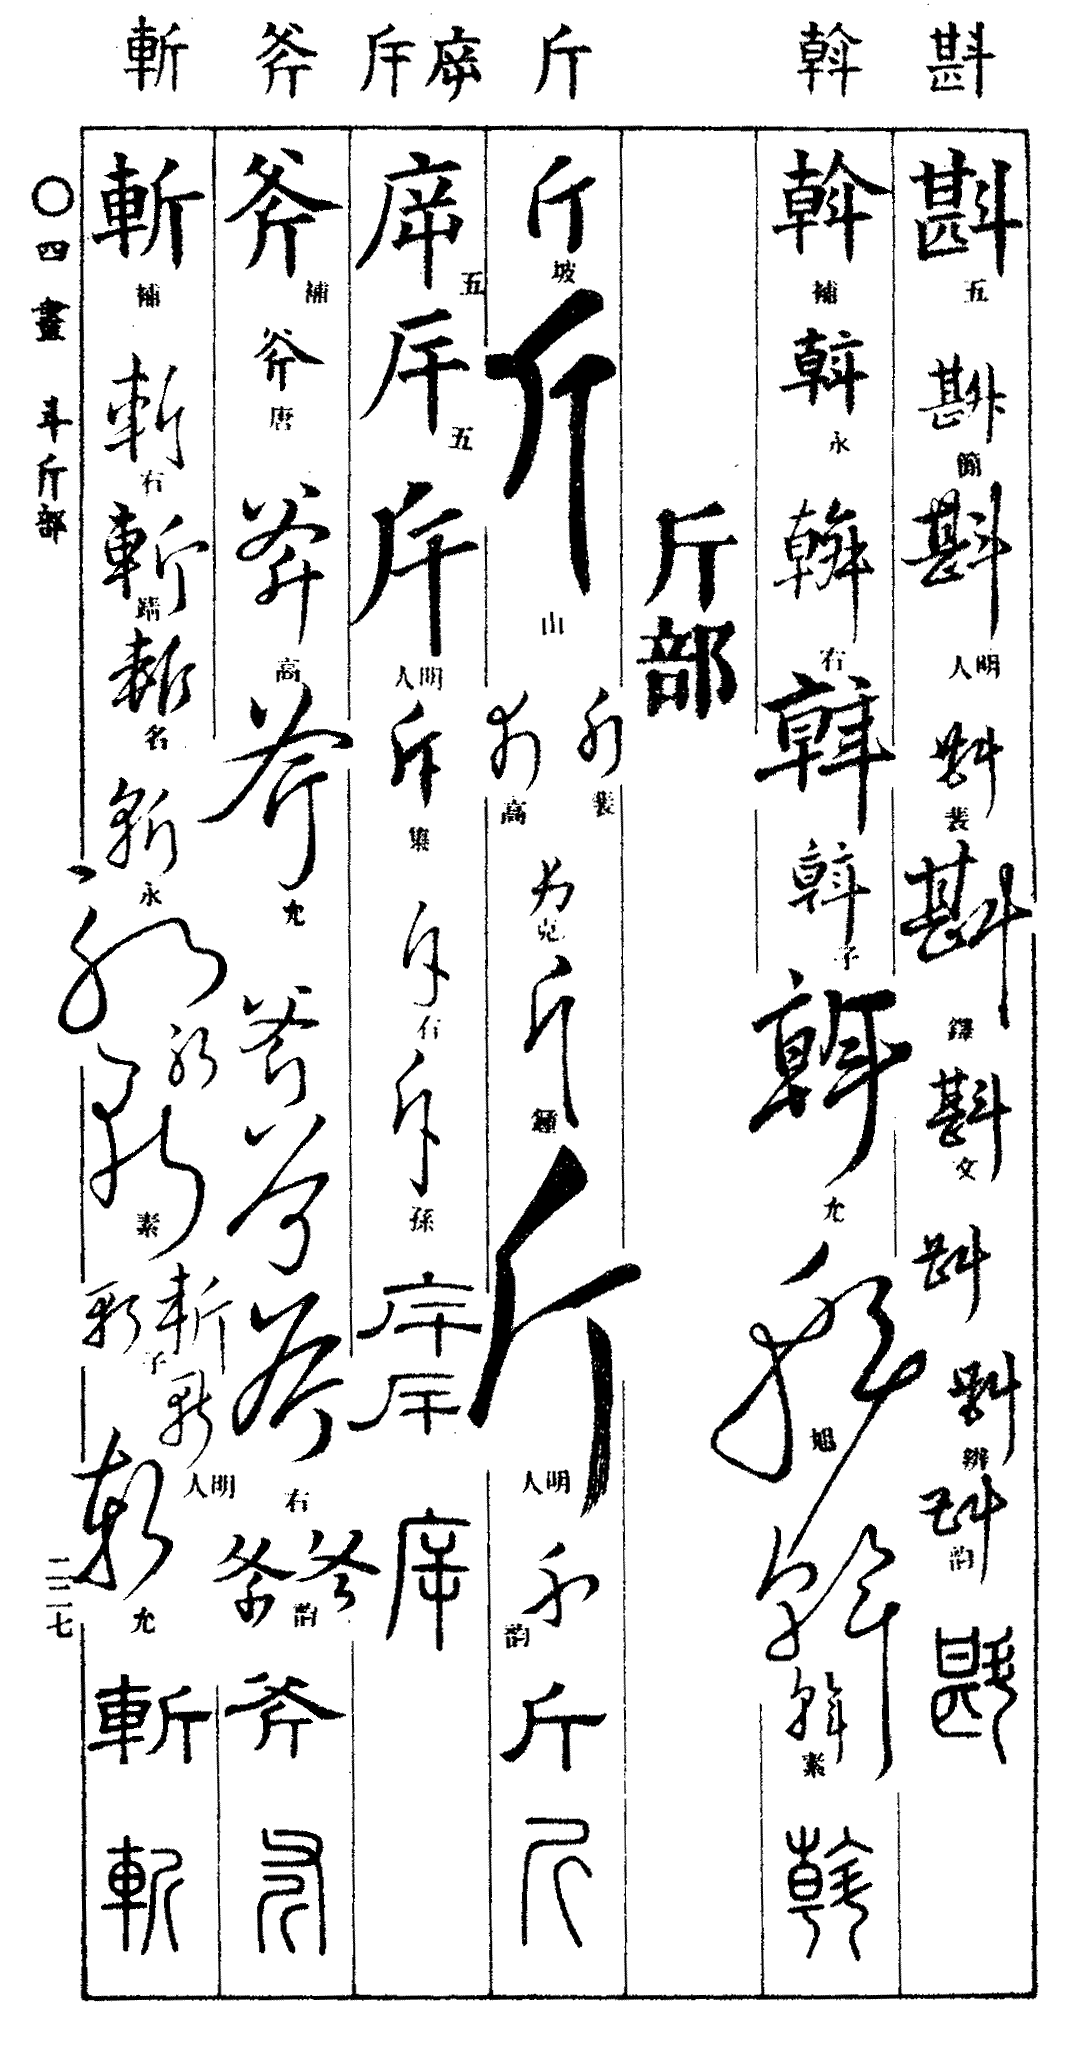 斟 斡 斤 㡿 斥 斧 斬
斟 五 斟 簡 斟 明人 斟 裴 斟 鐸 斟 文 斟 斟 辨 斟 韵 斟
斡 補 斡 永 斡 右 斡 斡 子 斡 允 斡 旭 斡 斡 素 斡
斤部
斤 坡 斤 山 斤 裴 斤 高 斤 克 斤 鍾 斤 明人 斤 韵 斤 斤
㡿 五 斥 五 斥 明人 斥 集 斥 右 斥 孫 㡿 斥 㡿
斧 補 斧 唐 斧 高 斧 允 斧 斧 斧 右 斧 斧 韵 斧 斧
斬 補 斬 右 斬 靖 斬 名 斬 永 斬 斬 斬 素 斬 斬 子 斬 明人 斬 允 斬 斬
〇四畫 斗斤部
二二七